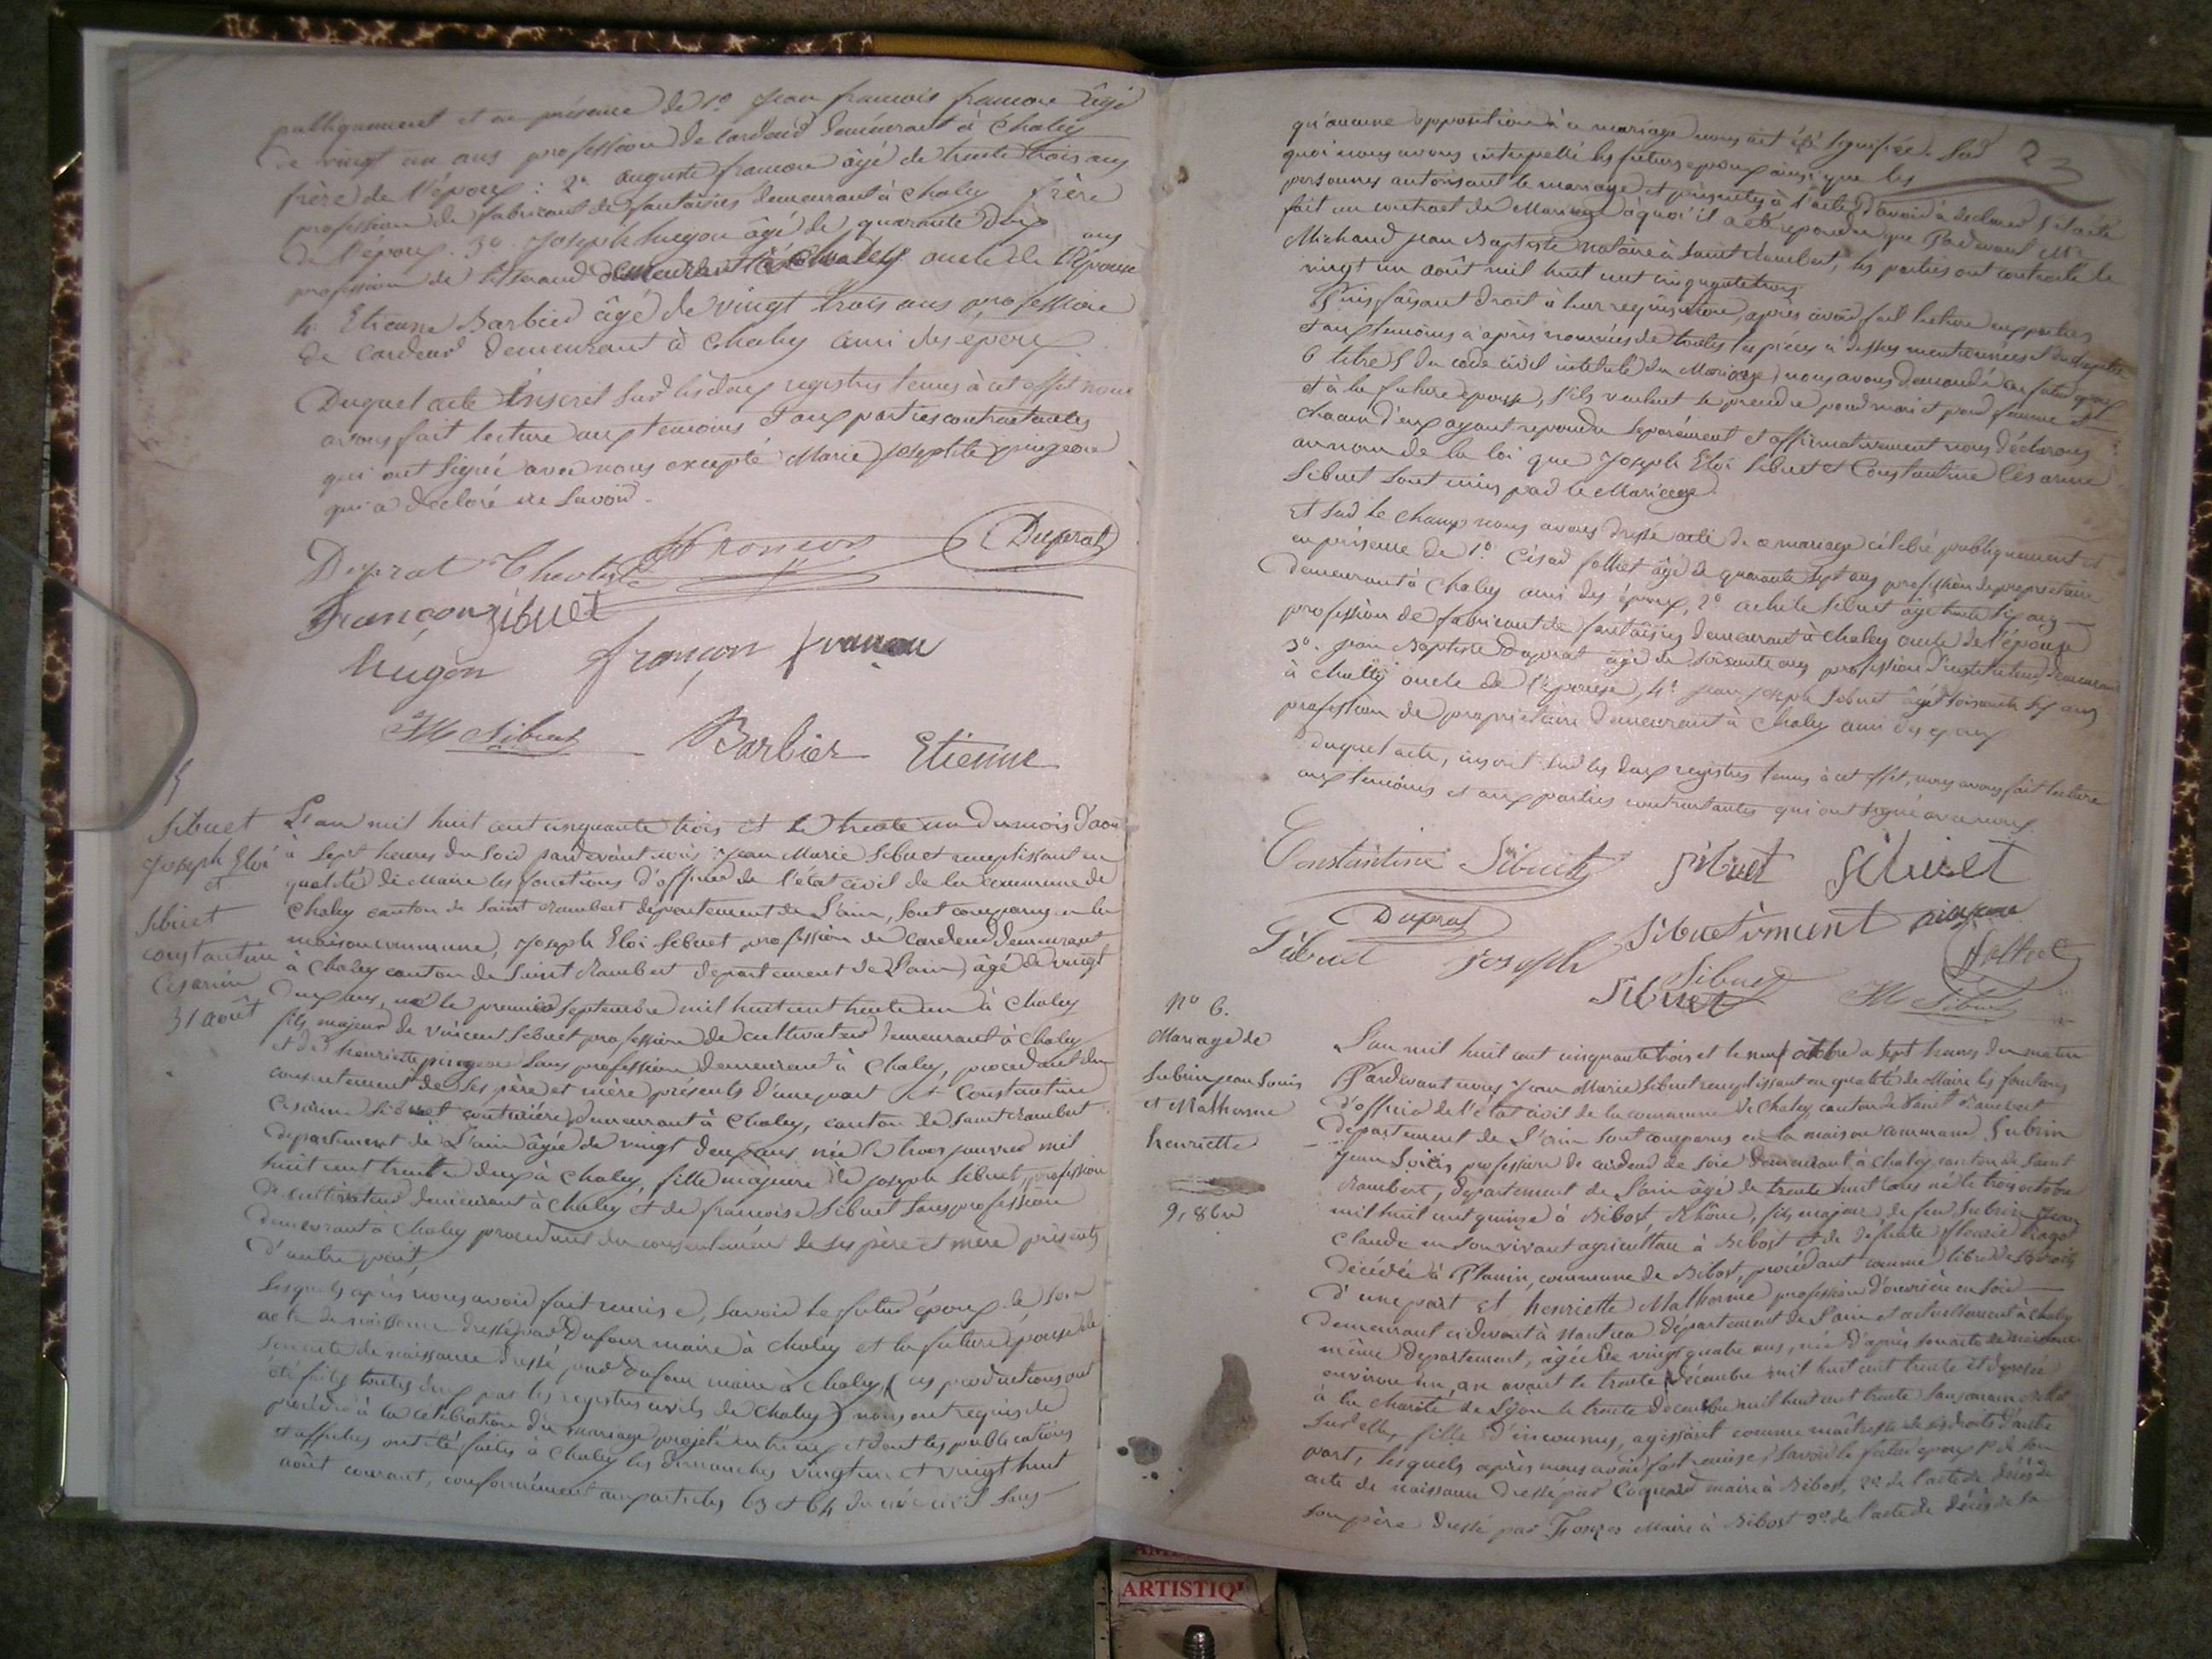 publiquement et en présence de 1º Jean francois francon âgé
de vingt un ans profession de cardeur demeurant à Chaley
frère de l'époux : 2º auguste francon âgé de trente trois ans
profession de fabricant de fantaisies demeurant à Chaley frère
de l'époux. 3º Joseph hugon âgé de quarante deux ans
profession de tisserand demeurant à Chaley oncle de l'épouse
4º Etienne Barbier âgé de vingt trois ans profession
de cardeur demeurant à Chaley ami des époux
Duquel acte inscrit sur les deux registres tenus à cet effet nous
avons fait lecture aux temoins et aux parties contractantes
qui ont signé avec nous excepté Marie Josephte pingeon
qui a déclaré ne savoir.
Duprat francon Duprat
françon sibuet
hugon françon francon
JM Sibuet Barbier Etienne
5
Sibuet
Joseph Eloi
et
Sibuet
constantine
Césarine
31 août
L'an mil huit cent cinquante trois et le trente un du mois d'août
à sept heures du soir pardevant nous Jean Marie Sibuet remplissant en
qualité de Maire les fonctions d'officier de l'état civil de la commune de
Chaley canton de Saint Rambert département de l'ain, sont comparus en la
maison commune, Joseph Eloi Sibuet profession de cardeur demeurant
à Chaley canton de Saint Rambert departement de l'ain âgé de vingt
deux ans, né le premier septembre mil huit cent trente un à Chaley
fils majeur de vincent Sibuet profession de cultivateur demeurant à Chaley
et de henriette pingeon sans profession demeurant à Chaley, procedant du
consentement de ses père et mère présents d'une part et Constantine
Césarine Sibuet couturière demeurant à Chaley, canton de Saint Rambert
departement de l'ain âgée de vingt deux ans née le trois janvier mil
huit cent trente deux à Chaley, fille majeure de joseph Sibuet profession
de cultivateur demeurant à Chaley et de francoise Sibuet sans profession
demeurant à Chaley procedant du consentement de ses père et mere présents
d'autre part
Lesquels après nous avoir fait remise, savoir le futur époux de son
acte de naissance dressé par Dufour maire à Chaley et la future épouse de
son acte de naissance dressé par Dufour maire à Chaley (ces productions ont
été faites toutes deux par les registres civils de Chaley) nous ont requis de
procéder à la célébration du mariage projeté entre eux et dont les publications
et affiches ont été faites à Chaley les dimanches vingt un et vingt huit
août courant, conformément aux articles 63 et 64 du code civil sans
23
qu'aucune opposition à ce mariage nous ait été signifiée. Sur
quoi nous avons interpellé les futurs epoux ainsi que les
personnes autorisant le mariage et présentes à l'acte d'avoir à declarer s'il a été
fait un contrat de Mariage à quoi il a été repondu que Pardevant Me
Michaud jean Baptiste notaire à Saint Rambert, les parties ont contracté le
vingt un août mil huit cent cinquante trois
Puis faisant droit à leur requisition, après avoir fait lecture aux parties
et aux temoins ci après nommés de toutes les pièces ci dessus mentionnées et du chapitre
6 titre 5 du code civil intitulé du Mariage, nous avons demandé au futur époux
et à la future épouse, s'ils veulent se prendre pour mari et pour femme et
chacun d'eux ayant repondu séparément et affirmativement nous déclarons
au nom de la loi que Joseph Eloi Sibuet et Constantine Césarine
Sibuet sont unis par le Mariage
Et sur le champ nous avons dressé acte de ce mariage célébré publiquement et
en présence de 1º César folliet âgé de quarante sept ans profession de proprietaire
demeurant à Chaley ami des époux, 2º achile Sibuet âgé trente six ans
profession de fabricant de fantaisies demeurant à Chaley oncle de l'épouse
3º. jean Baptiste Duprat âgé de soixante ans profession d'instituteur demeurant
à Chaley oncle de l'épouse, 4º jean joseph Sibuet âgé soixante six ans
profession de proprietaire demeurant à Chaley ami des époux
duquel acte, inscrit sur les deux registres tenus à cet effet, nous avons fait lecture
aux temoins et aux parties contractantes qui ont signé avec nous.
Constantine Sibuet Sibuet Sibuet
Duprat Sibuet vincent pingeon
Sibuet joseph Sibuet folliet
Sibuet JM Sibuet
Nº 6.
Mariage de
Subrin jean Louis
et Malhorme
henriette
9, 8bre
L'an mil huit cent cinquante trois et le neuf octobre a sept heures du matin
Pardevant nous Jean Marie Sibuet remplissant en qualité de Maire les fonctions
d'officier de l'état civil de la commune de Chaley canton de Saint Rambert
département de l'ain sont comparus en la maison commune Subrin
Jean Louis profession de cardeur de soie demeurant à Chaley canton de Saint
Rambert, département de l'ain âgé de trente huit ans né le trois octobre
mil huit cent quinze à Bibost, Rhône, fils majeur de feu Subrin Jean
Claude en son vivant agriculteur à Bibost et de défunte fleurie Ragot
décédée à Planin, commune de Bibost, procédant comme libre de ses droits
d'une part et henriette Malhorme profession d'ouvrière en soie
demeurant ci devant à Nantua département de l'ain et actuellement à Chaley
même departement, âgée de vingt quatre ans, née d'après son acte de naissance
environ un an avant le trente décembre mil huit cent trente et déposée
à la charité de Lyon le trente décembre mil huit cent trente
sur elle, fille d'inconnus, agissant comme maîtresse de ses droits d'autre
part, lesquels après nous avoir fait remise, savoir le futur époux 1º de son
acte de naissance dressé par Coquard maire à Bibost, 2º de l'acte de décès de
son père dressé par maire à Bibost 3º de l'acte de décès de sa
ARTISTIQ